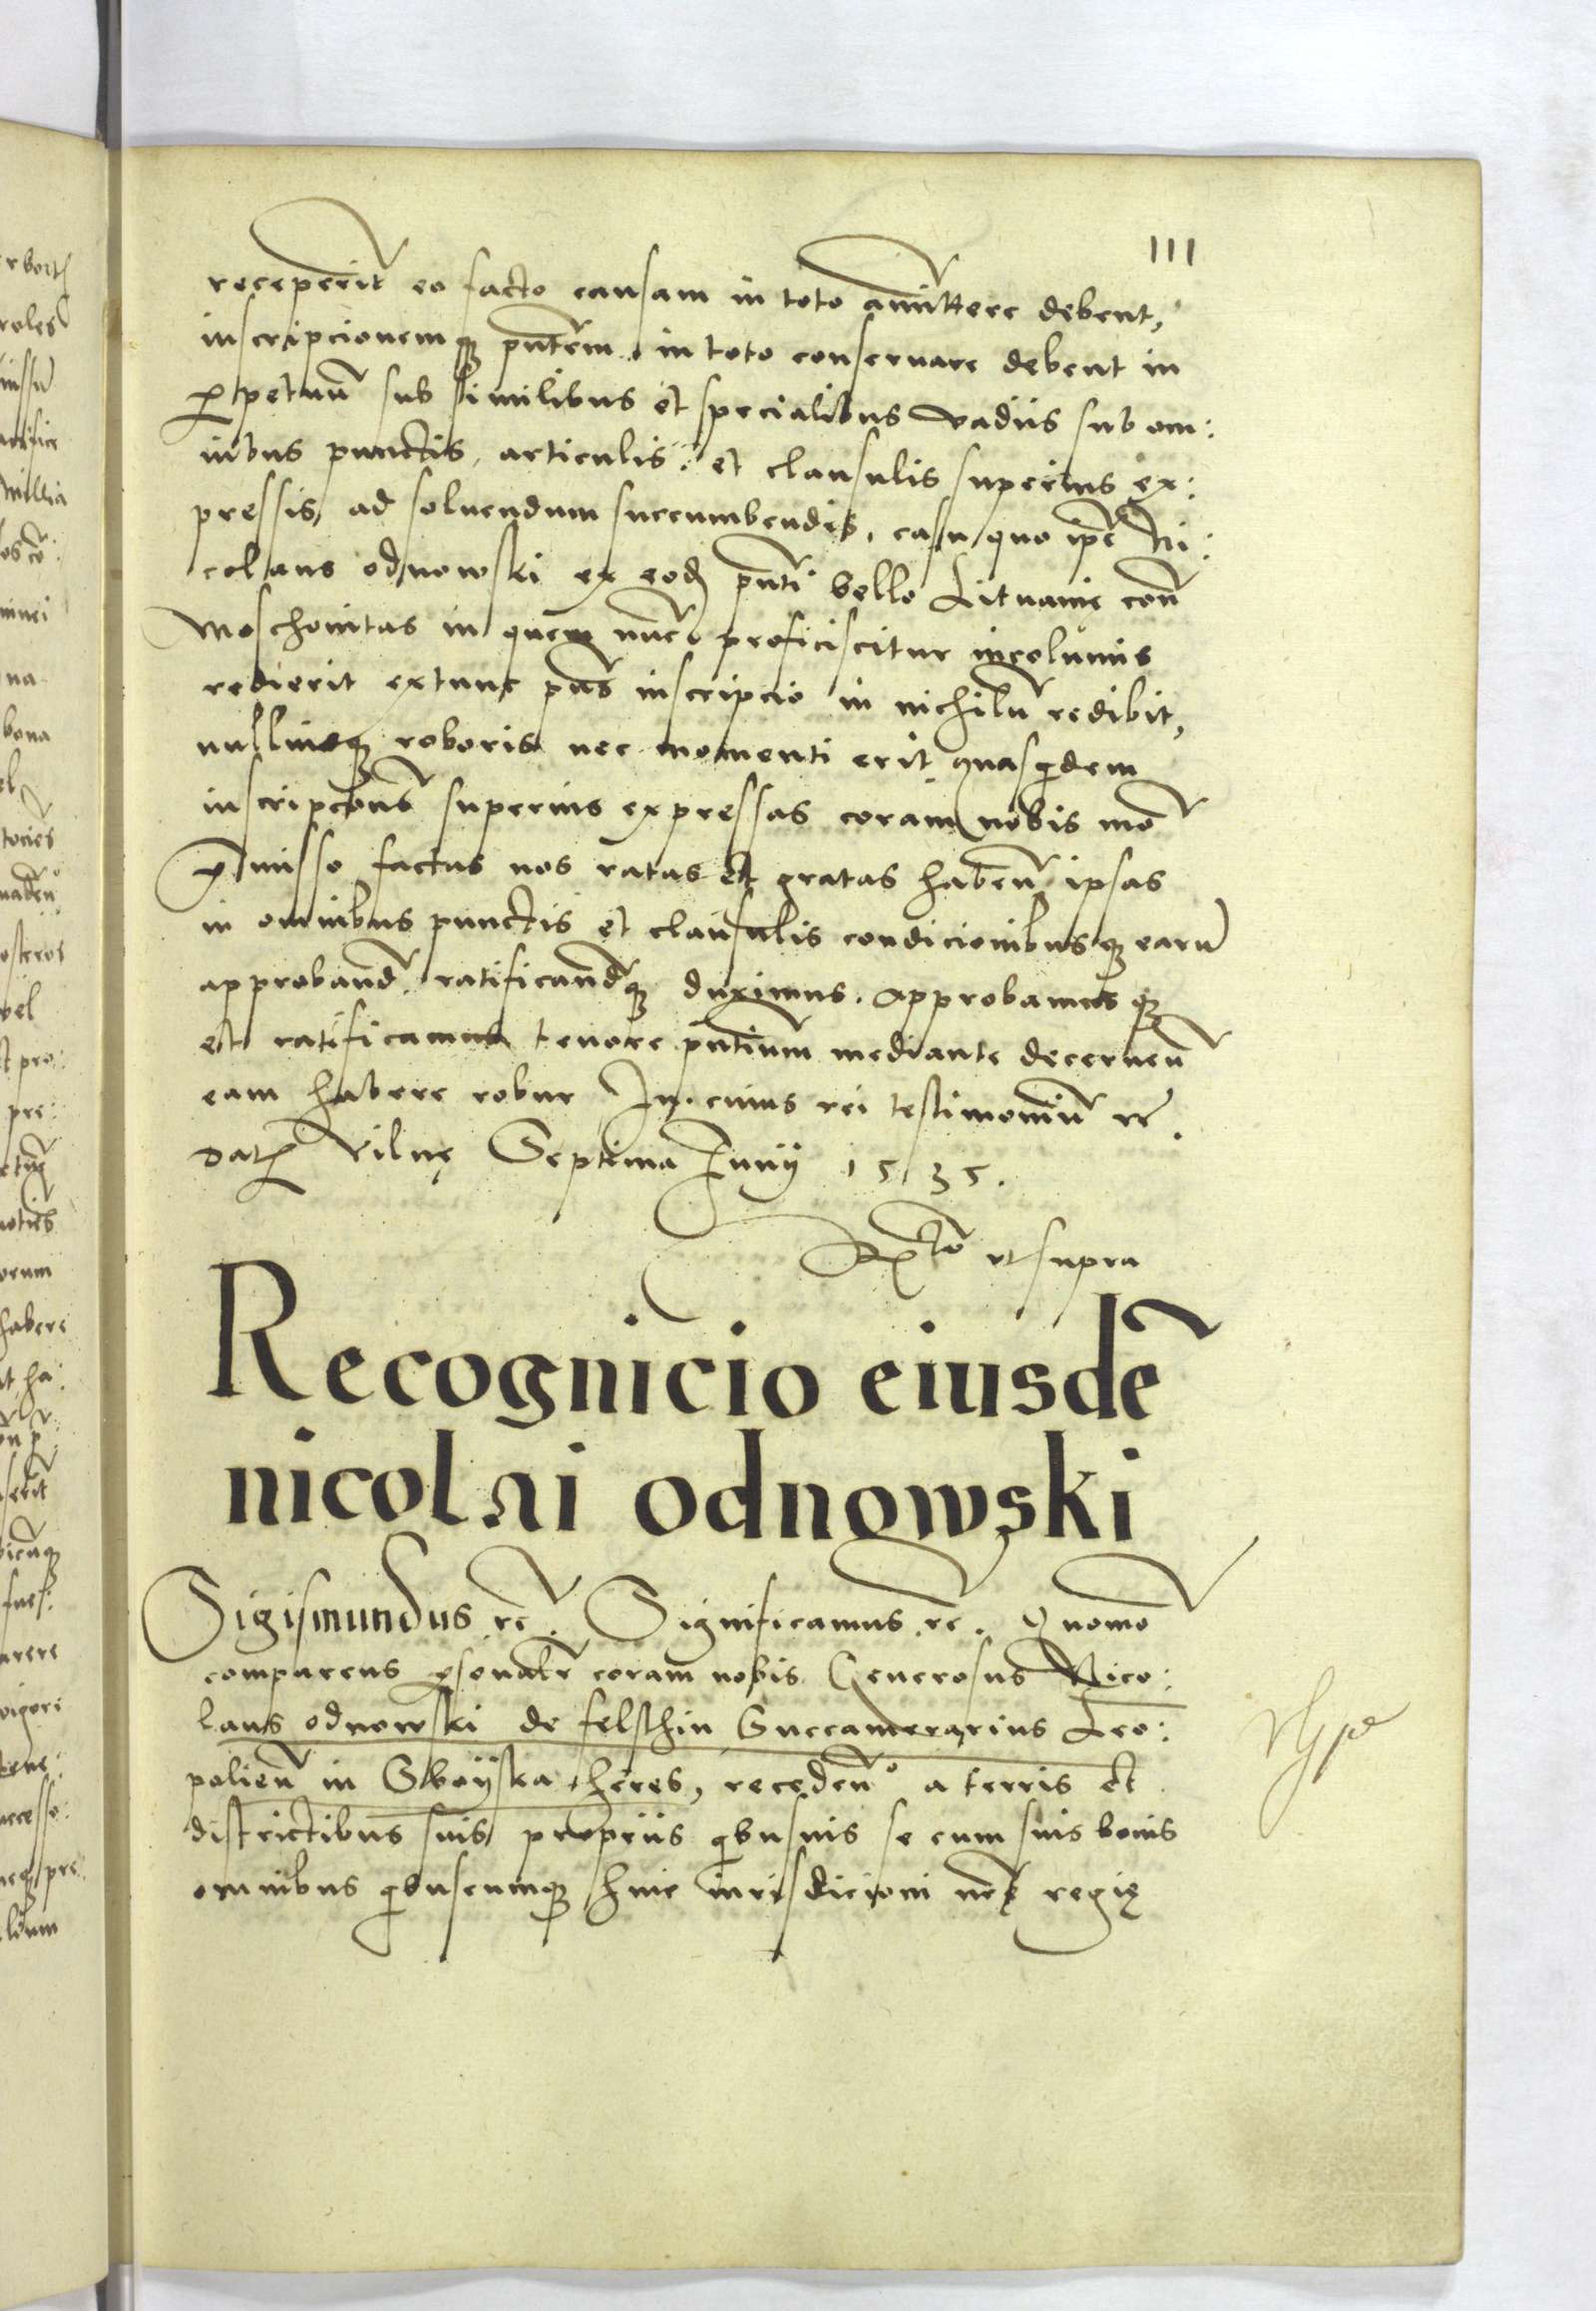 111
receperīt eo facto causam in toto amittere debent,
inscripcionemqȝ pñtem in toto conseruare debent in
ꝑpetuū sub similibus et specialibus vadiis sub om:
nibus punctis, articulis et clausulis superius ex:
pressis, ad soluendum succumbendis, casu quo ip̄e Ni:
colaus odnowski ex eod pñti bello Lituanię con̄
Moschouitas in quem nūc proficiscitur incolumis
redierit extunc pñs inscripcio in nichilū redibit,
nulliusqȝ roboris nec momenti erit quasquidem
inscripcōnes superius expressas coram nobis mō
p̄misso factas nos ratas et gratas haben̄ ipsas
in omnibus punctis et clausulis condicionibusqȝ earū
approband̄ ratificand̄qȝ duximus. Approbamusqȝ
et ratificamus tenore pñtium mediante decernen̄
eam habere robur In cuius rei testimoniū rc̄.
Dat Vilnę Septima Junij 1535.
Rto ut supra
Recognicio eiusdē
nicolai odnowski
Sigismundus rc̄. Significamus rc̄. Quomō
comparens ꝑsonalr̄ coram nobis Generosus Nico:
laus odnowski de felschin Succamerarius Leo:
polien̄ in Swoyska heres, receden̄o a terris et
districtibus suis propriis qibusuis se cum suis bonis
omnibus qibuscumqȝ huic iurisdicioni nr̄ę regię